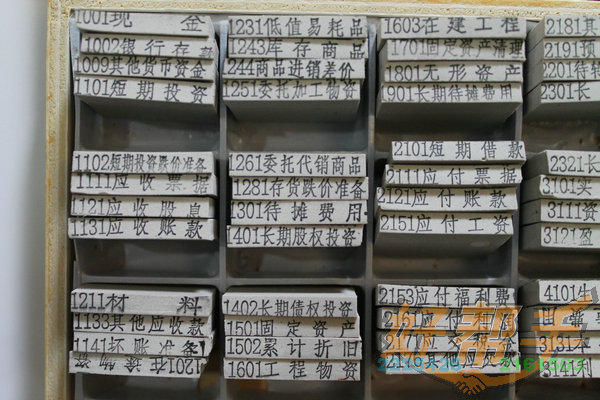 1001现 金
1002银行存款
1009其他货币资金
1101短期投资
1231低值易耗品
1243库存商品
1244商品进销差价
1251委托加工物资
1603在建工程
1701固定资产清理
1801无形资产
1901长期待摊费用
2181其
2191预
2201待转
2301长
1102短期投资跌价准备
1111应收票据
1121应收股息
1131应收账款
1261委托代销商品
1281存货跌价准备
1301待摊费用
1401长期股权投资
2101短期借款
2111应付票据
2121应付账款
2151应付工资
2321长
3101实
3111资
3121盈
1211材 料
1133其他应收款
1141坏账准备
1201在途物资
1402长期债权投资
1501固定资产
1502累计折旧
1601工程物资
2153应付福利费
4101生
3131本
3141利